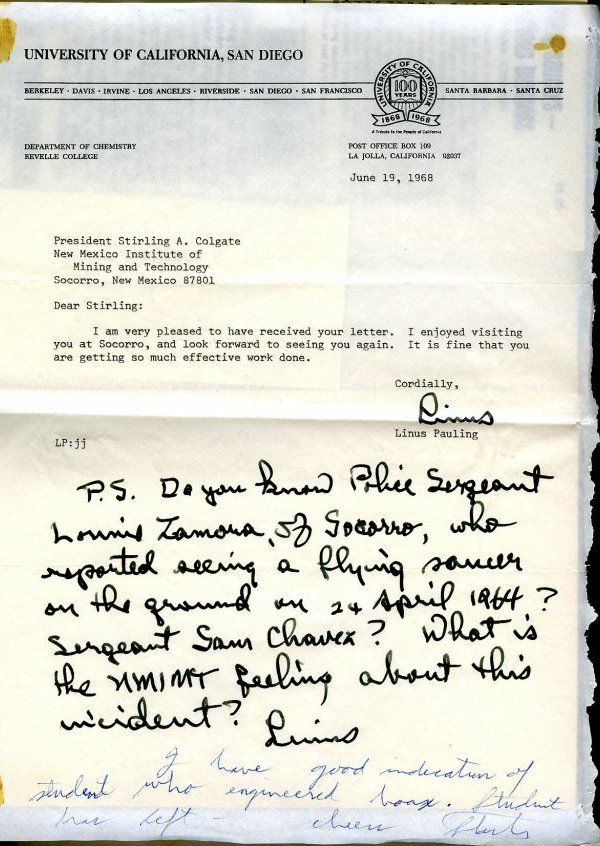 UNIVERSITY OF CALIFORNIA, SAN DIEGO
BERKELEY · DAVIS · IRVINE · LOS ANGELES · RIVERSIDE · SAN DIEGO · SAN FRANCISCO
SANTA BARBARA · SANTA CRUZ
UNIVERSITY OF CALIFORNIA
100
YEARS
1868 1968
A Tribute to the People of California
DEPARTMENT OF CHEMISTRY
REVELLE COLLEGE
POST OFFICE BOX 109
LA JOLLA, CALIFORNIA 92037
June 19, 1968
President Stirling A. Colgate
New Mexico Institute of
Mining and Technology
Socorro, New Mexico 87801
Dear Stirling:
I am very pleased to have received your letter. I enjoyed visiting
you at Socorro, and look forward to seeing you again. It is fine that you
are getting so much effective work done.
Cordially,
Linus
Linus Pauling
LP:jj
P.S. Do you know Police Sergeant
Lonnie Zamora, of Socorro, who
reported seeing a flying saucer
on the ground on 24 April 1964?
Sergeant Sam Chavez? What is
the NMIMT feeling about this
incident? Linus
I have good indication of
student who engineered hoax. Student
has left - cheers